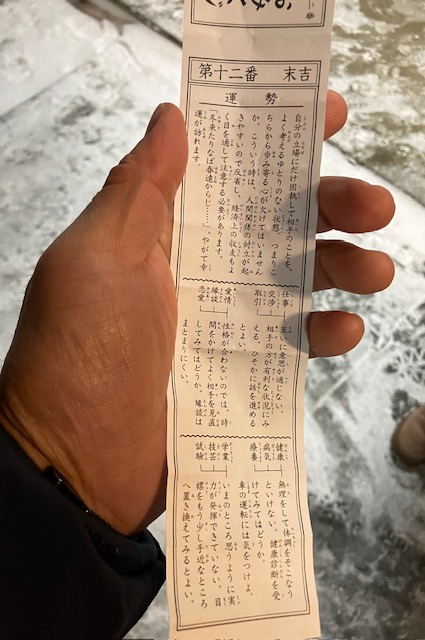 おみくじ
第十二番 末吉
運勢
自分の立場にだけ固執して相手のことを、
よく考えるゆとりのない状態。つまりこ
ちらから歩み寄る心が欠けてはいません
か。こういう時は、人間関係の対立が起
きやすいので反省し、経済上の収支もよ
く目を通して注意する必要があります。
「冬来たりなば春遠からじ……」。やがて幸
運が訪れます。
仕事
交渉
取引
互いに意思が通じない。
相手の方が有利な状況にみ
える。ひそかに話を進める
とよい
愛情
縁談
恋愛
性格が合わないのでは。時
間をかけてよく相手を見直
してみてはどうか。縁談は
まとまりにくい。
健康
病気
療養
無理をして体調をそこなう
といけない。健康診断を受
けてみてはどうか。
車の運転には気をつけよ。
学業
技芸
試験
いまのところ思うように実
力が発揮できていない。目
標をもう少し手近なところ
へ置き換えてみるとよい。